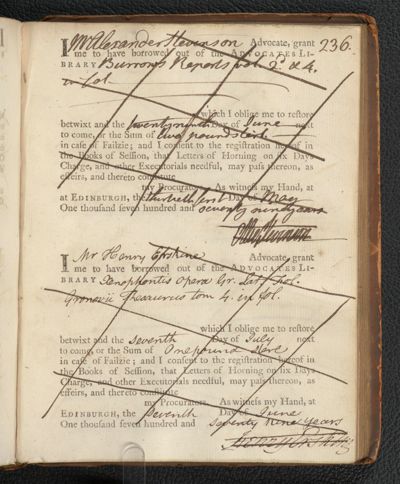 236.
I Mr Alexander Stevenson Advocate, grant
me to have borrowed out of the ADVOCATES LI-
BRARY Burrows Reports vol. 2d. & 4.
in fol.
which I oblige me to restore
betwixt and the twentyninth Day of June next
to come, or the Sum of two pounds sterl.
in case of Failzie; and I consent to the registration hereof in
the Books of Session, that Letters of Horning on six Days
Charge, and other Executorials needful, may pass thereon, as
effeirs, and thereto constitute
my Procurators. As witness my Hand, at
at EDINBURGH, the thirtieth first Day of May
One thousand seven hundred and seventy nine years
Alex Stevenson
I Mr Henry Erskine Advocate, grant
me to have borrowed out of the ADVOCATES LI-
BRARY Xenophontis opera Gr. Lat. fol.
Gronovii Thesaurus tom 4. in fol.
which I oblige me to restore
betwixt and the seventh Day of July next
to come, or the Sum of One pound Ster.
in case of Failzie; and I consent to the registration hereof in
the Books of Session, that Letters of Horning on six Days
Charge, and other Executorials needful, may pass thereon, as
effeirs, and thereto constitute
my Procurators. As witness my Hand, at
EDINBURGH, the seventh Day of June
One thousand seven hundred and seventy nine years